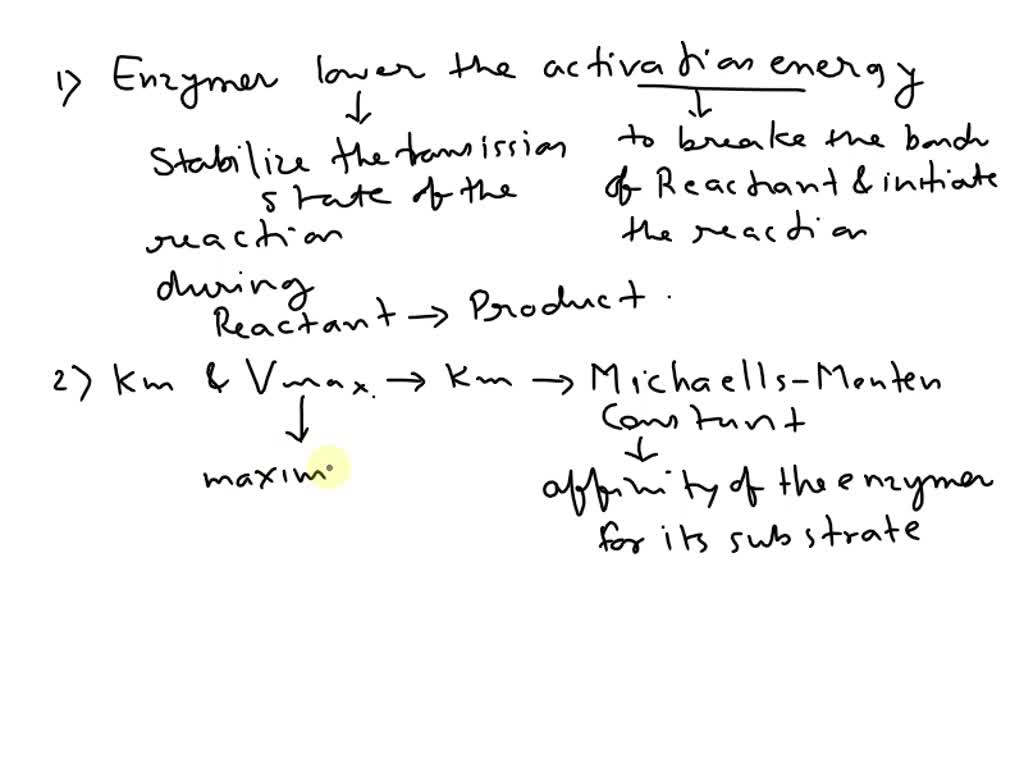 1) Enzymer lower the activation energy
↓ ↓
Stabilize the tranission to breake the bonds
state of the of Reactant & initiate
reaction the reaction
during
Reactant → Product.
2) Km & Vmax. → Km → Michaells-Menten
↓ Constant
↓
maxim affinity of the enzymer
for its substrate